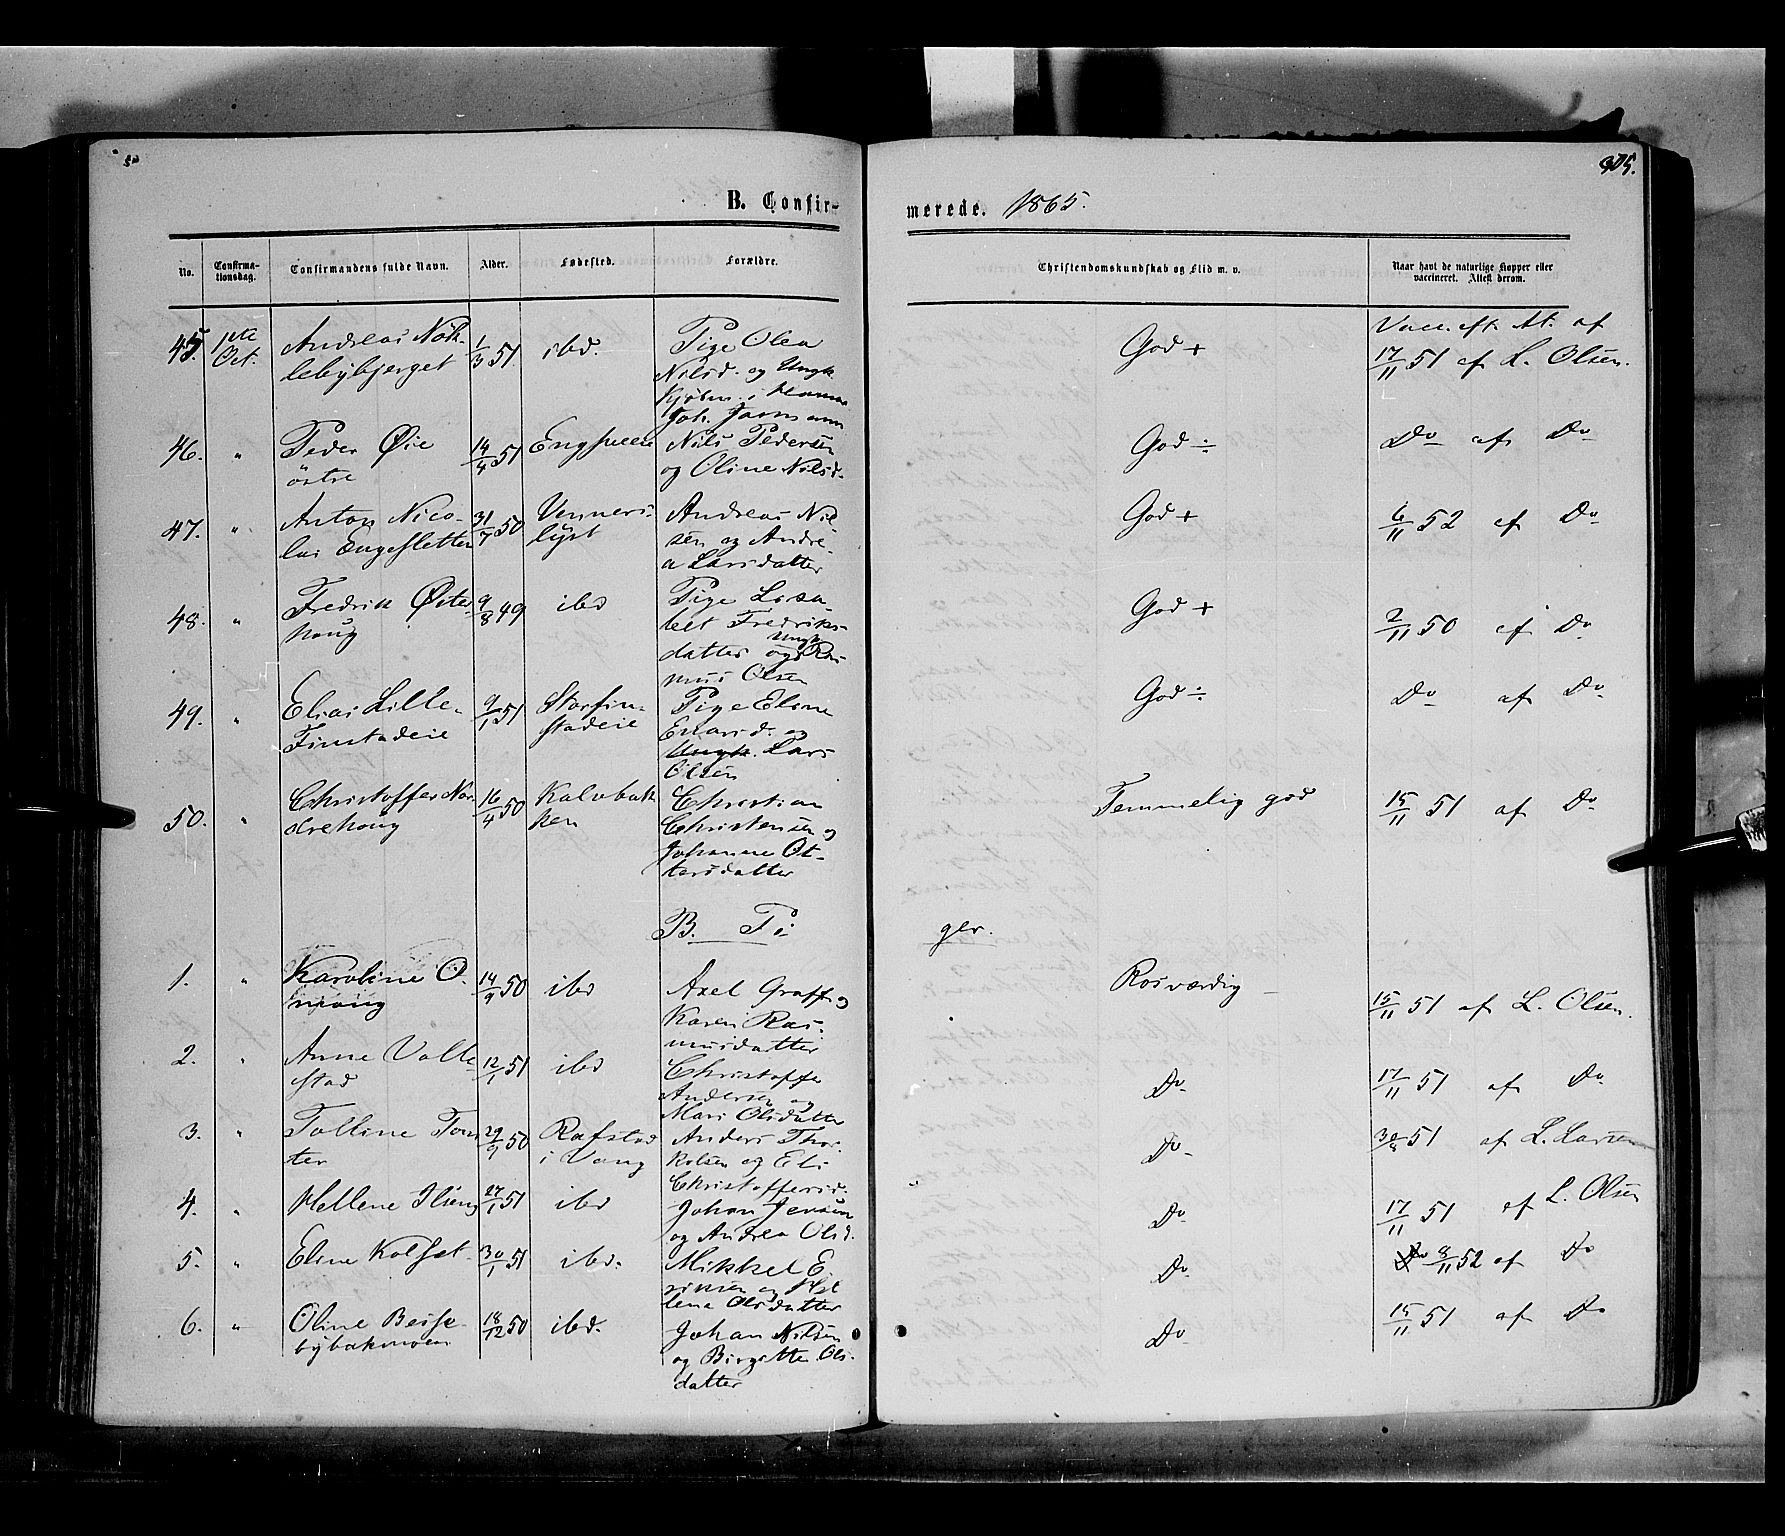 305.
B. Confirmerede. 1865.
No. Confirmationsdag. Confirmandens fulde Navn. Alder. Fødested. Forældre. Christendomskundskab og Flid m. v. Naar havt de naturlige Kopper eller vaccineret. Attest derom.
45. 1ste Oct. Andreas Nøk-
lebybjerget 1/3 51. ibd. Pige Olea
Nilsd. og Ungk.
Kjøbm. i Hamar
Joh. God + Vacc. eft. At. af
17/11 51 af L. Olsen.
46. " Peder Øie
østre 14/4 51 Nils Pedersen
og Oline Nilsd. God ÷ Do af Do
47. " Anton Nico-
lai Engesletten 31/7 50 Venners-
lyst Andreas Nil-
sen og Andre-
a Larsdatter God + 6/11 52 af Do
48. " Fredrik Øster-
houg 9/8 49 ibd Pige Lisa-
bet Fredriks-
datter og Ungk. Ras-
mus Olsen God + 2/11 50 af Do
49. " Elias Lille-
Finstadeie 9/1 51 Storfin-
stadeie Pige Eline
Enarsd. og
Ungk. Lars
Olsen God ÷ Do af Do
50. " Christoffer Nor-
drehoug 16/4 50 Kalvbak-
ken Christian
Christensen og
Johanne Ot-
tersdatter Temmelig god 15/11 51 af Do
B. Piger.
1. " Karoline O-
nsoug 14/9 50 ibd Axel Graff og
Karen Ras-
musdatter Rosværdig 15/11 51 af L. Olsen.
2. " Anne Valle-
stad 12/1 51 ibd Christoffer
Andersen og
Mari Olsdatter Do 17/11 51 af Do
3. " Tolline Tom-
ter 29/9 50 Rafstad
i Vang Anders Thor-
kelsen og Eli
Christoffersd. Do 51 af L. Larsen
4. " Hellene Ilseng 27/1 51 ibd Johan Jensen
og Andrea Olsd. Do 17/11 51 af L. Olsen
5. " Eline Kolset 30/1 51 ibd. Mikkel E-
riksen og Hel-
lena Olsdatter Do 8/11 52 af Do
6. " Oline Berse-
bybakmoen 18/12 50 ibd. Johan Nilsen
og Birgitte Ols-
datter Do 15/11 51 af Do